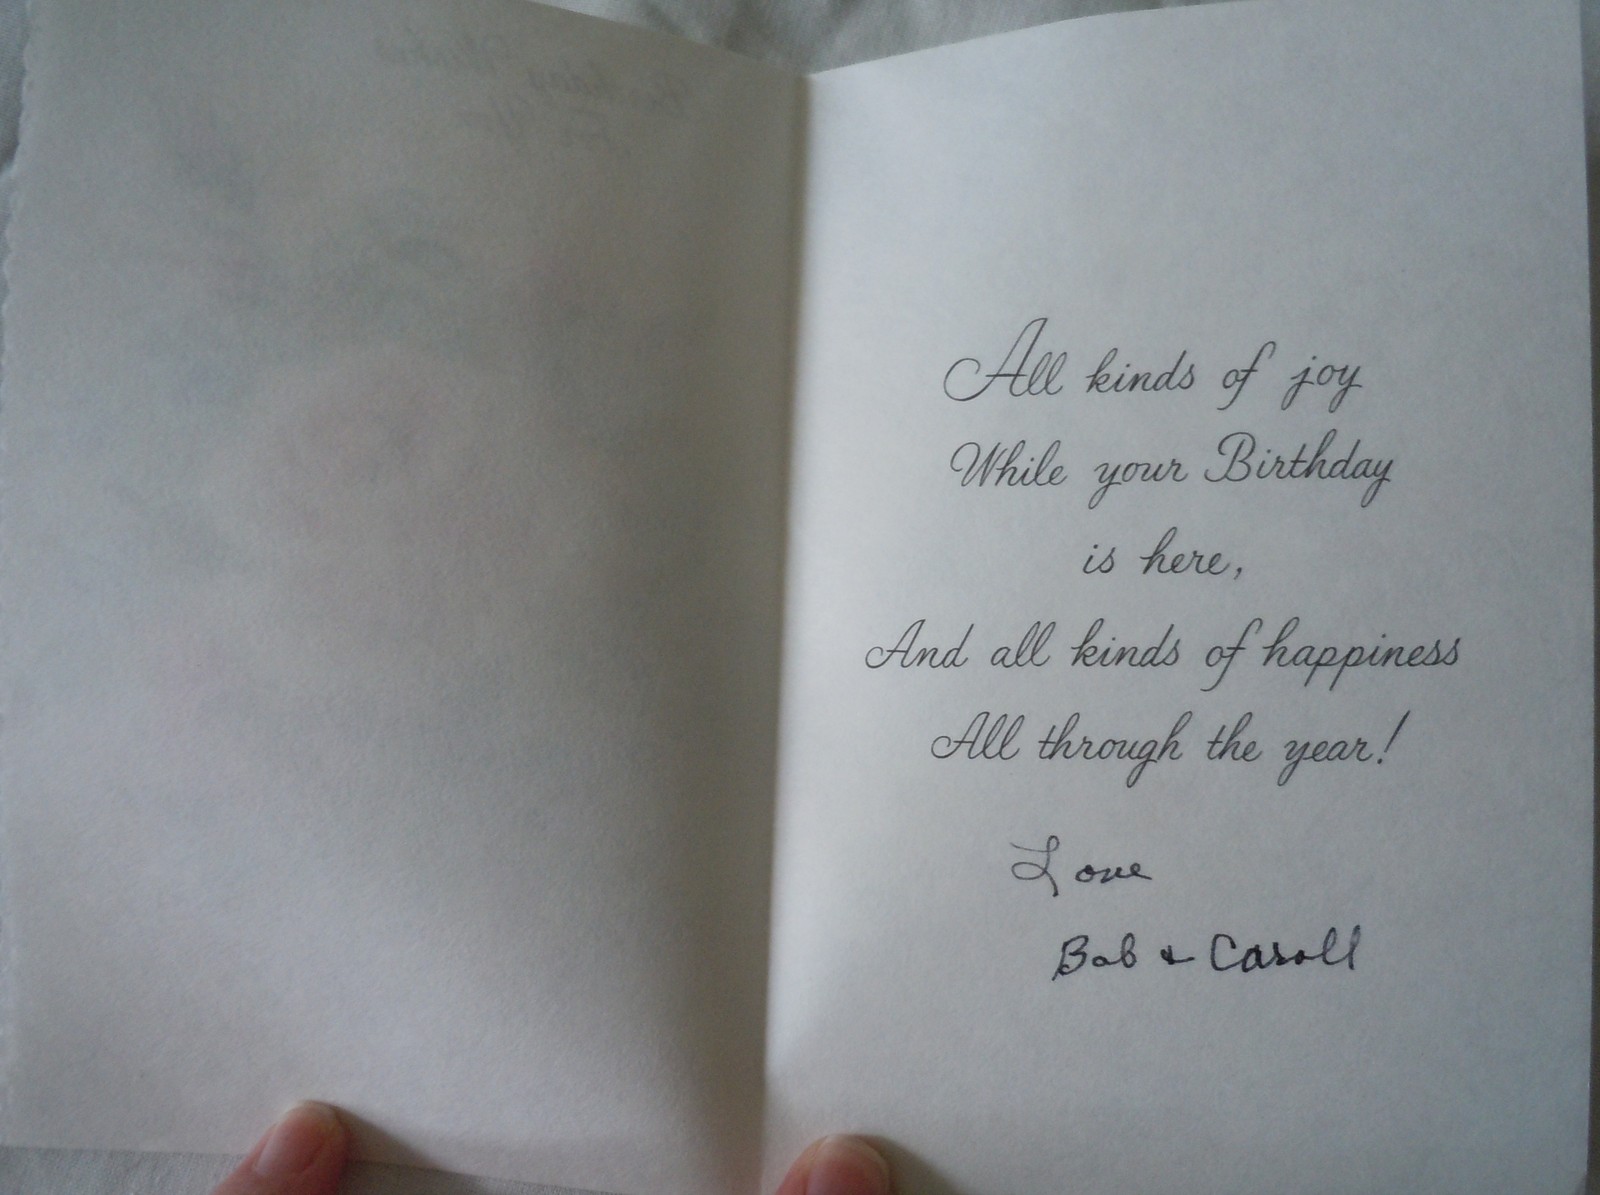 Birthday Wishes
For You
All kinds of joy
While your Birthday
is here,
And all kinds of happiness
All through the year!
Love
Bob & Caroll